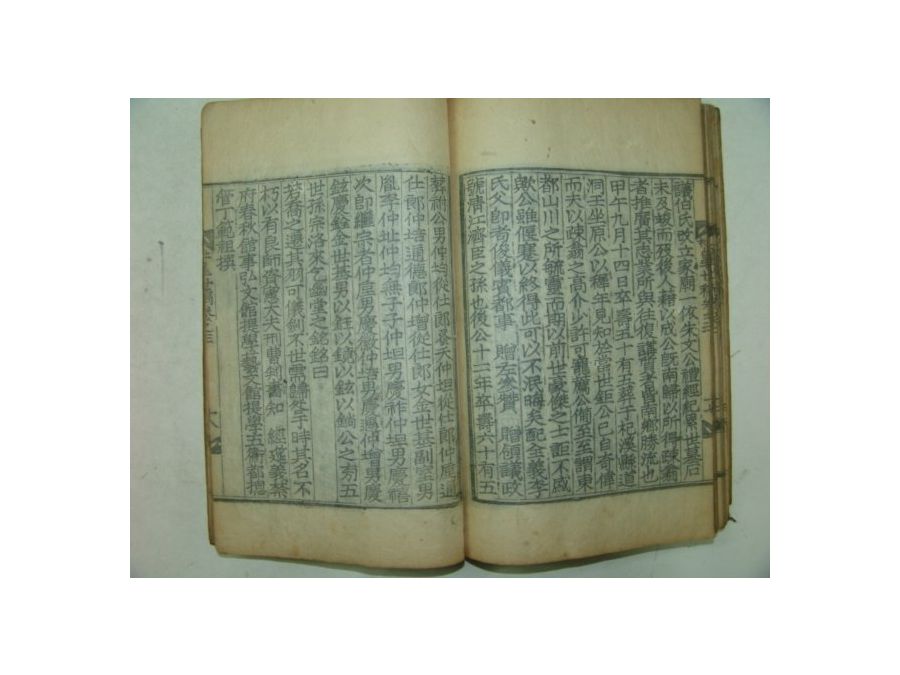 議伯氏改立家廟一依朱文公禮經紀累世墓石
未及竣而歿後人藉以成公旣南歸以所得疎翁
者推廣其志業所與往復講質者皆南鄕勝流也
甲午九月十四日卒壽五十有五葬于杞溪縣道
洞壬坐原公以穉年見知於當世鉅公已自奇偉
而大以疎翁之高介少許可寵廣公備至至謂東
都山川之所毓靈而期以前世豪傑之士詎不盛
歟公雖偃蹇以終得此可以不泯晦矣配全義李
氏父師者後儀賓都事 贈左參贊 贈領議政
號淸江濟臣之孫也後公十二年卒壽六十有五
葬祔公男仲均從仕郞吞夭仲坦從仕郞仲垕通
仕郞仲培通德郞仲增從仕郞女金世基副室男
胤奉仲址仲均無子子仲坦男慶祚仲坦男慶禧
次卽繼宗者仲垕男慶徵仲培男慶遇仲增男慶
鉉慶錀金世基男以鈺以鏑以鉉以錥公之旁五
世孫宗洛來乞幽堂之銘銘曰
若喬之遷其羽可儀剡不世需歸然于時其名不
朽以有良師資憲大夫刑曹判書知 經筵義禁
府春秋館事弘文館提學藝文館提學五衛都摠
管丁範祖撰